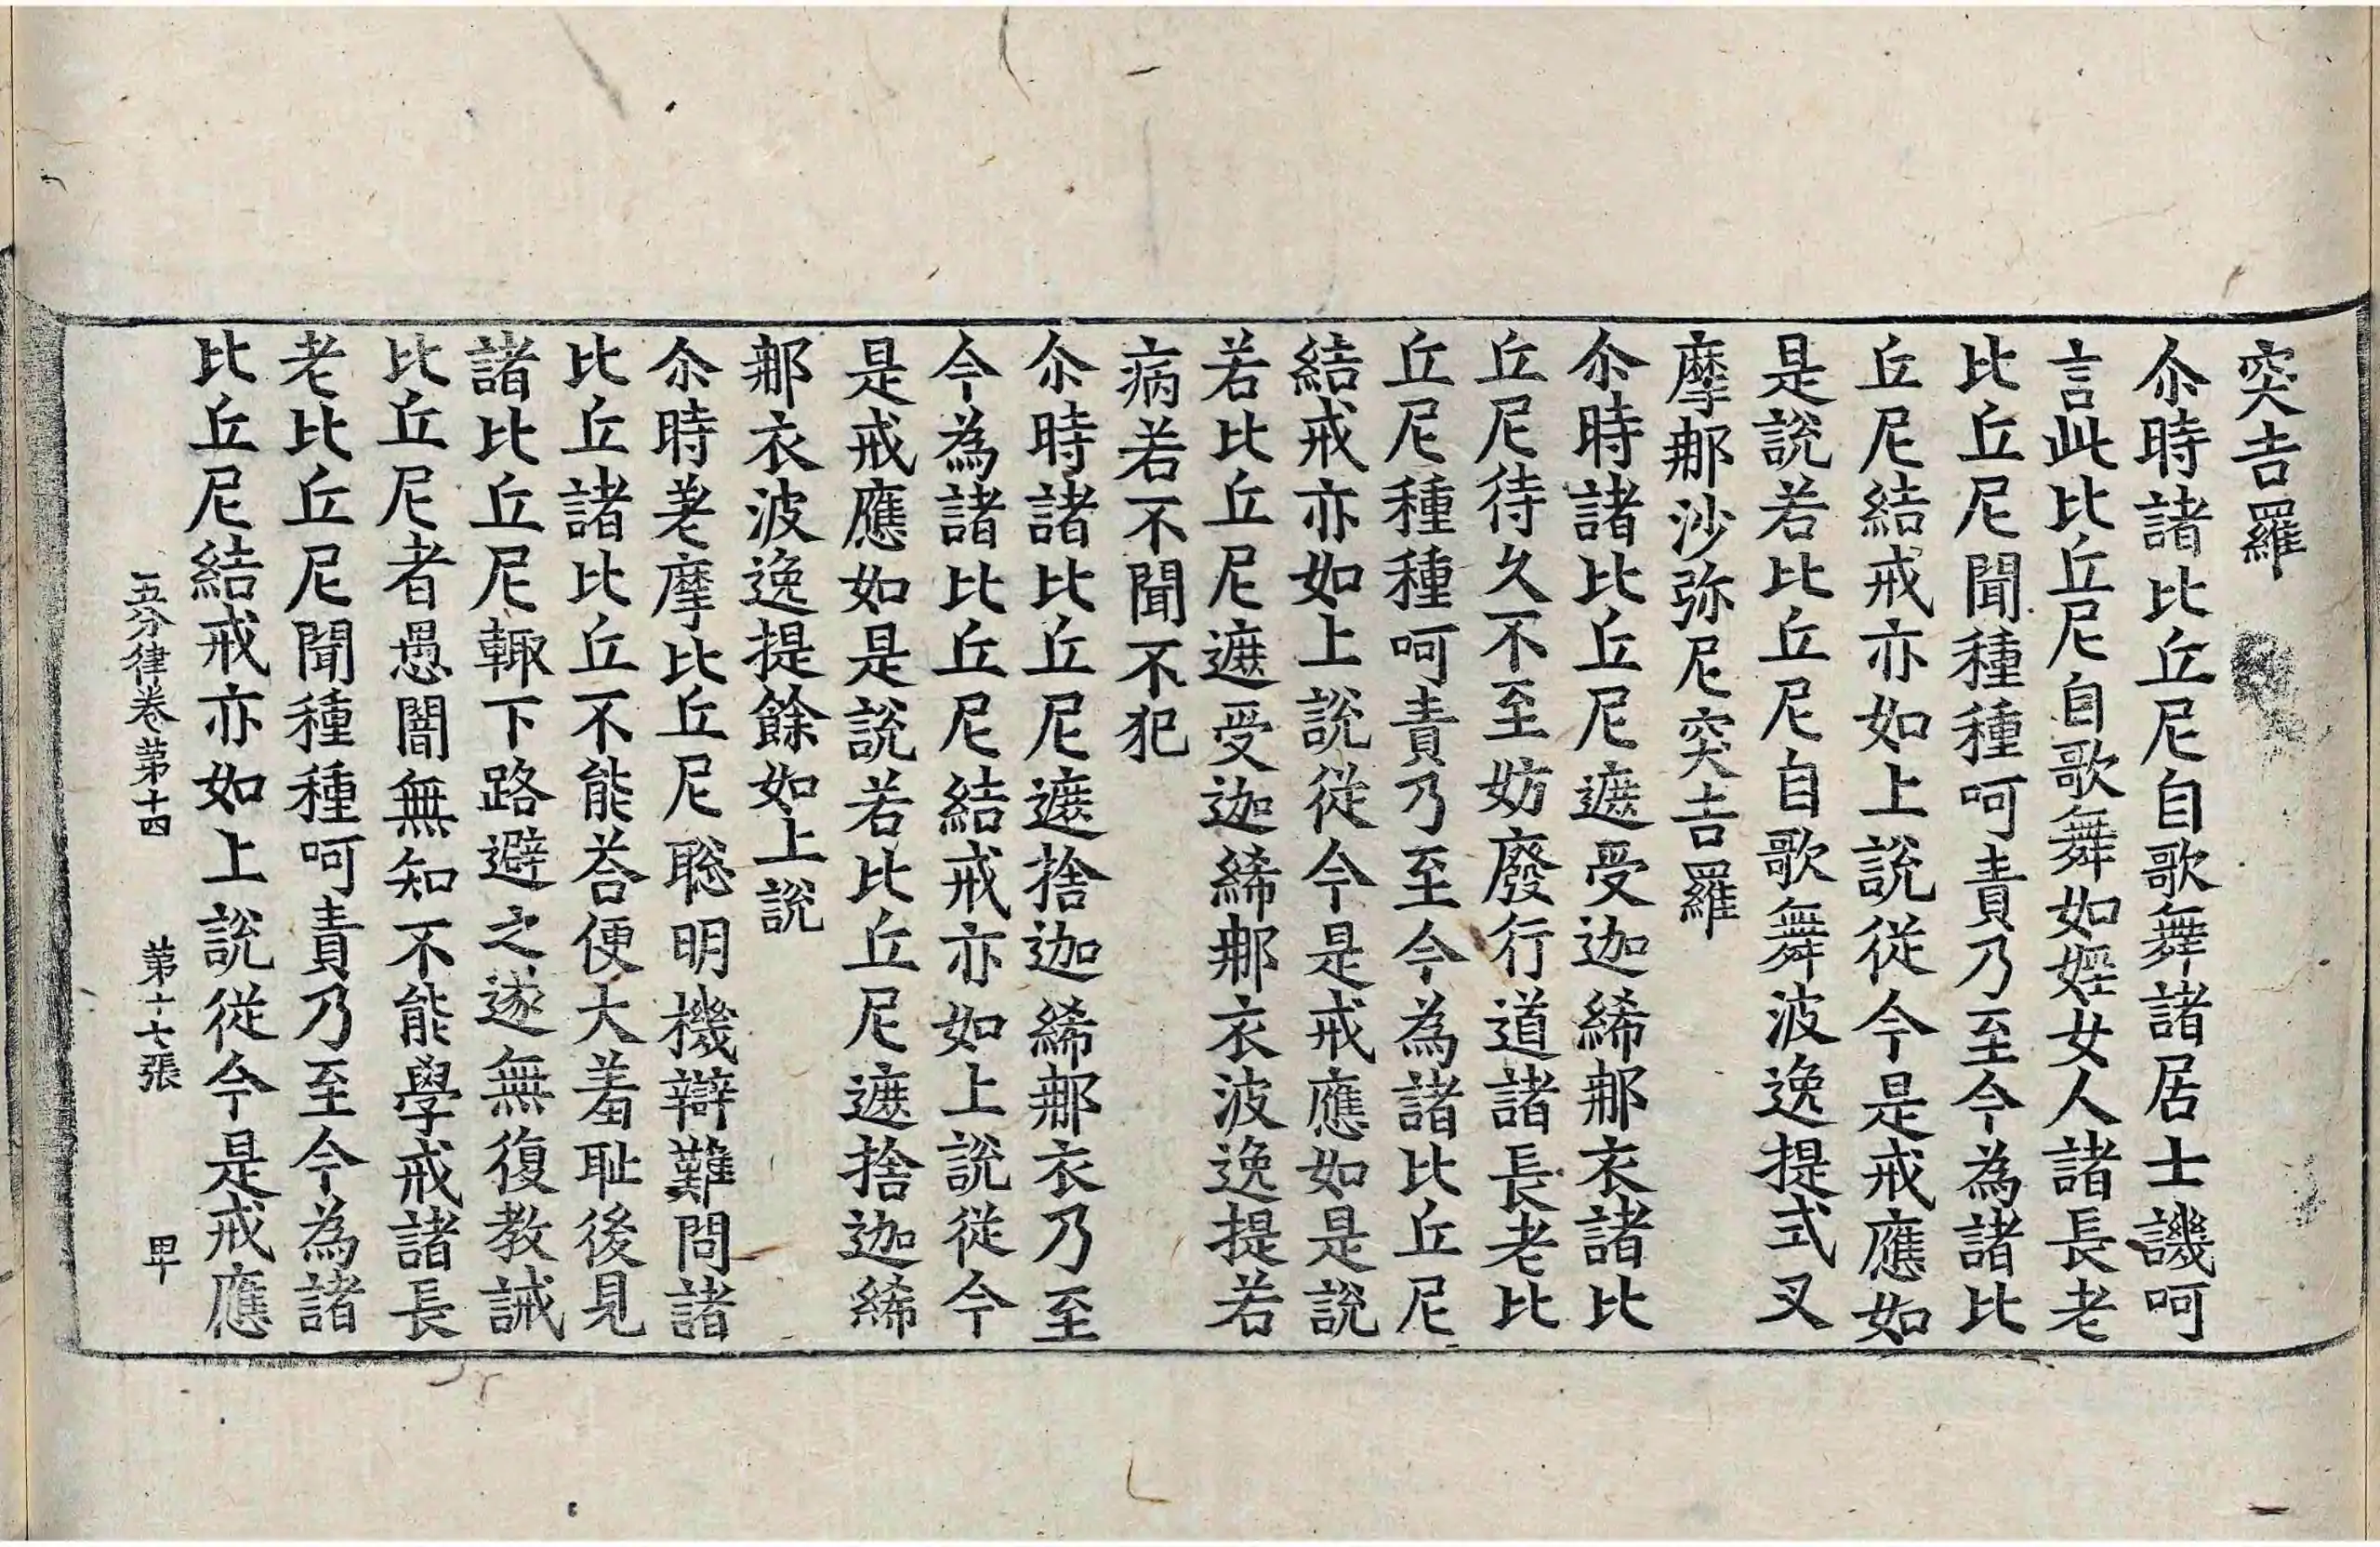 突吉羅
尒時諸比丘尼自歌舞諸居士譏呵
言此比丘尼自歌舞如婬女人諸長老
比丘尼聞種種呵責乃至今為諸比
丘尼結戒亦如上說從今是戒應如
是說若比丘尼自歌舞波逸提式叉
摩那沙弥尼突吉羅
尒時諸比丘尼遮受迦絺那衣諸比
丘尼待久不至妨廢行道諸長老比
丘尼種種呵責乃至今為諸比丘尼
結戒亦如上說從今是戒應如是說
若比丘尼遮受迦絺那衣波逸提若
病若不聞不犯
尒時諸比丘尼遮捨迦絺那衣乃至
今為諸比丘尼結戒亦如上說從今
是戒應如是說若比丘尼遮捨迦絺
那衣波逸提餘如上說
尒時差摩比丘尼聡明機辯難問諸
比丘諸比丘不能荅便大羞耻後見
諸比丘尼輙下路避之遂無復教誡
比丘尼者愚闇無知不能學戒諸長
老比丘尼聞種種呵責乃至今為諸
比丘尼結戒亦如上說從今是戒應
五分律卷第十四 第十七張